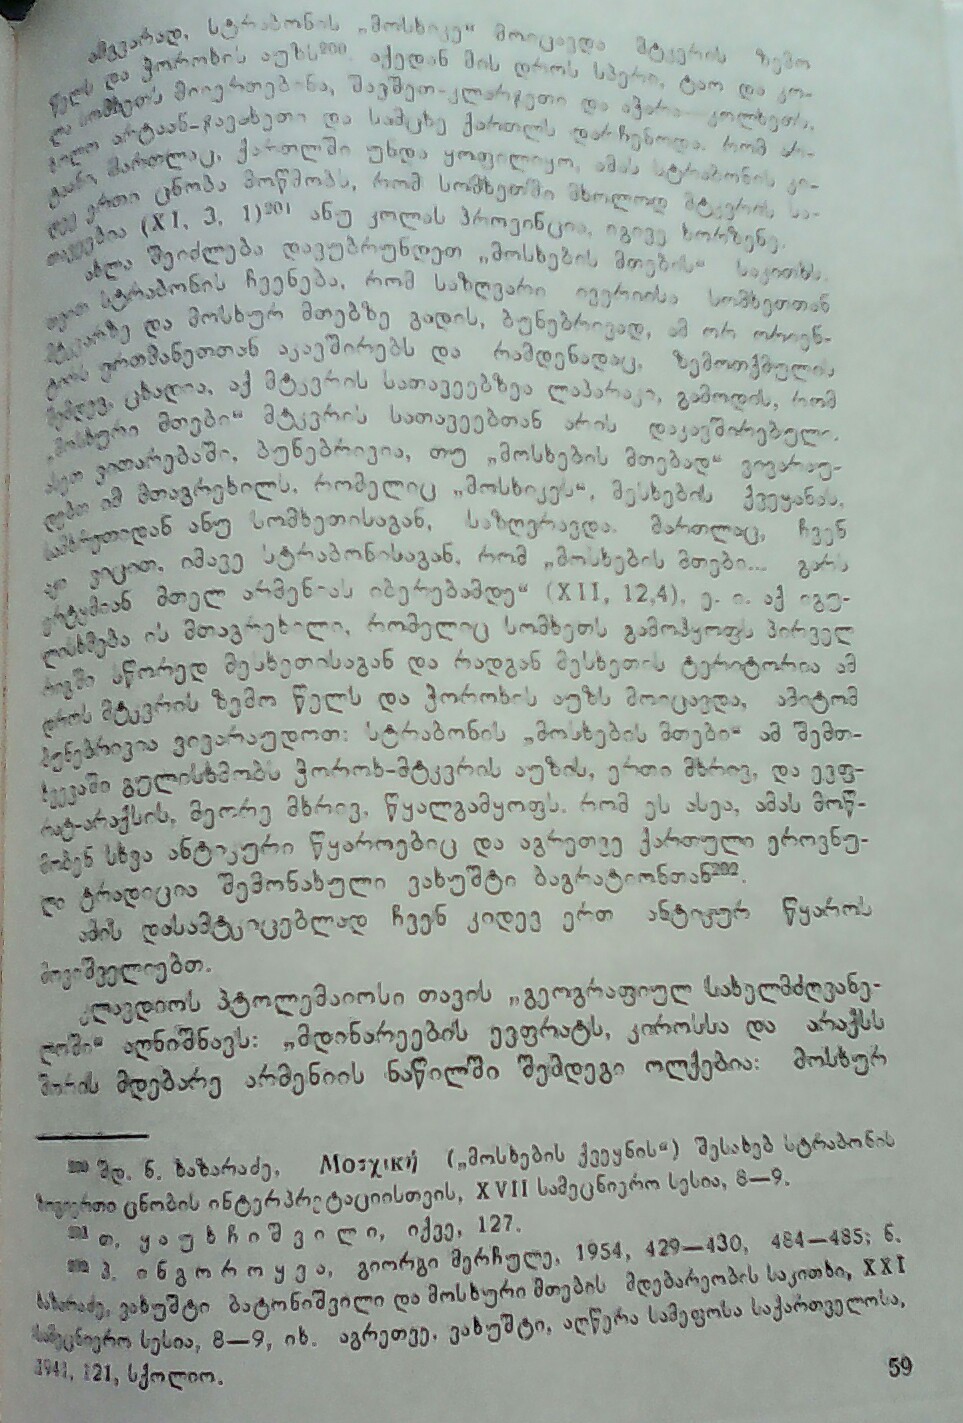 ამგვარად, სტრაბონის „მოსხიკე“ მოიცავდა მტკვრის ზემო
წელს და ჭოროხის აუზს200. აქედან მის დროს სპერი, ტაო და კო-
ლა სომხეთს მიიერთებინა, შავშეთ-კლარჯეთი და აჭარა კოლხეთს,
ხოლო არტაან-ჯავახეთი და სამცხე ქართლს დარჩენოდა. რომ არ-
ტაანი, მართლაც, ქართლში უნდა ყოფილიყო, ამას სტრაბონის კი-
დევ ერთი ცნობა მოწმობს, რომ სომხეთში მხოლოდ მტკვრის სა-
თავეებია (XI, 3, 1)201 ანუ კოლას პროვინცია, იგივე ხორზენე.
ახლა შეიძლება დავუბრუნდეთ „მოსხების მთების“ საკითხს.
თვით სტრაბონის ჩვენება, რომ საზღვარი ივერიისა სომხეთთან
მტკვარზე და მოსხურ მთებზე გადის, ბუნებრივად, ამ ორ ორიენ-
ტირს ერთმანეთთან აკავშირებს და რამდენადაც, ზემოთქმულის
შემდეგ, ცხადია, აქ მტკვრის სათავეებზეა ლაპარაკი, გამოდის, რომ
„მოსხური მთები“ მტკვრის სათავეებთან არის დაკავშირებული.
ასეთ ვითარებაში, ბუნებრივია, თუ „მოსხების მთებად“ ვივარაუ-
დებთ იმ მთაგრეხილს, რომელიც „მოსხიკეს“, მესხების ქვეყანას,
სამხრეთიდან ანუ სომხეთისაგან, საზღვრავდა. მართლაც, ჩვენ
აკი ვიცით, იმავე სტრაბონისაგან, რომ „მოსხების მთები... გარს
ერტყმიან მთელ არმენიას იბერებამდე“ (XII, 12,4), ე. ი. აქ იგუ-
ლისხმება ის მთაგრეხილი, რომელიც სომხეთს გამოჰყოფს პირველ
რიგში სწორედ მესხეთისაგან და რადგან მესხეთის ტერიტორია ამ
დროს მტკვრის ზემო წელს და ჭოროხის აუზს მოიცავდა, ამიტომ
ბუნებრივია ვივარაუდოთ: სტრაბონის „მოსხების მთები“ ამ შემთ-
ხვევაში გულისხმობს ჭოროხ-მტკვრის აუზის, ერთი მხრივ, და ევფ-
რატ-არაქსის, მეორე მხრივ, წყალგამყოფს. რომ ეს ასეა, ამას მოწ-
მობენ სხვა ანტიკური წყაროებიც და აგრეთვე ქართული ეროვნუ-
ლი ტრადიცია შემონახული ვახუშტი ბაგრატიონთან202.
ამის დასამტკიცებლად ჩვენ კიდევ ერთ ანტიკურ წყაროს
მოვიშველიებთ.
კლავდიოს პტოლემაიოსი თავის „გეოგრაფიულ სახელმძღვანე-
ლოში“ აღნიშნავს: „მდინარეების ევფრატს, კიროსსა და არაქსს
შორის მდებარე არმენიის ნაწილში შემდეგი ოლქებია: მოსხურ
200 შდ. ნ. ხაზარაძე, Μοσχική („მოსხების ქვეყნის“) შესახებ სტრაბონის
ზოგიერთი ცნობის ინტერპრეტაციისთვის, XVII სამეცნიერო სესია, 8—9.
201 თ. ყაუხჩიშვილი, იქვე, 127.
202 პ. ინგოროყვა, გიორგი მერჩულე, 1954, 429—430, 484—485; ნ.
ხაზარაძე, ვახუშტი ბატონიშვილი და მოსხური მთების მდებარეობის საკითხი, XXI
სამეცნიერო სესია, 8—9, იხ. აგრეთვე, ვახუშტი, აღწერა სამეფოსა საქართველოსა,
1941, 121, სქოლიო.
59